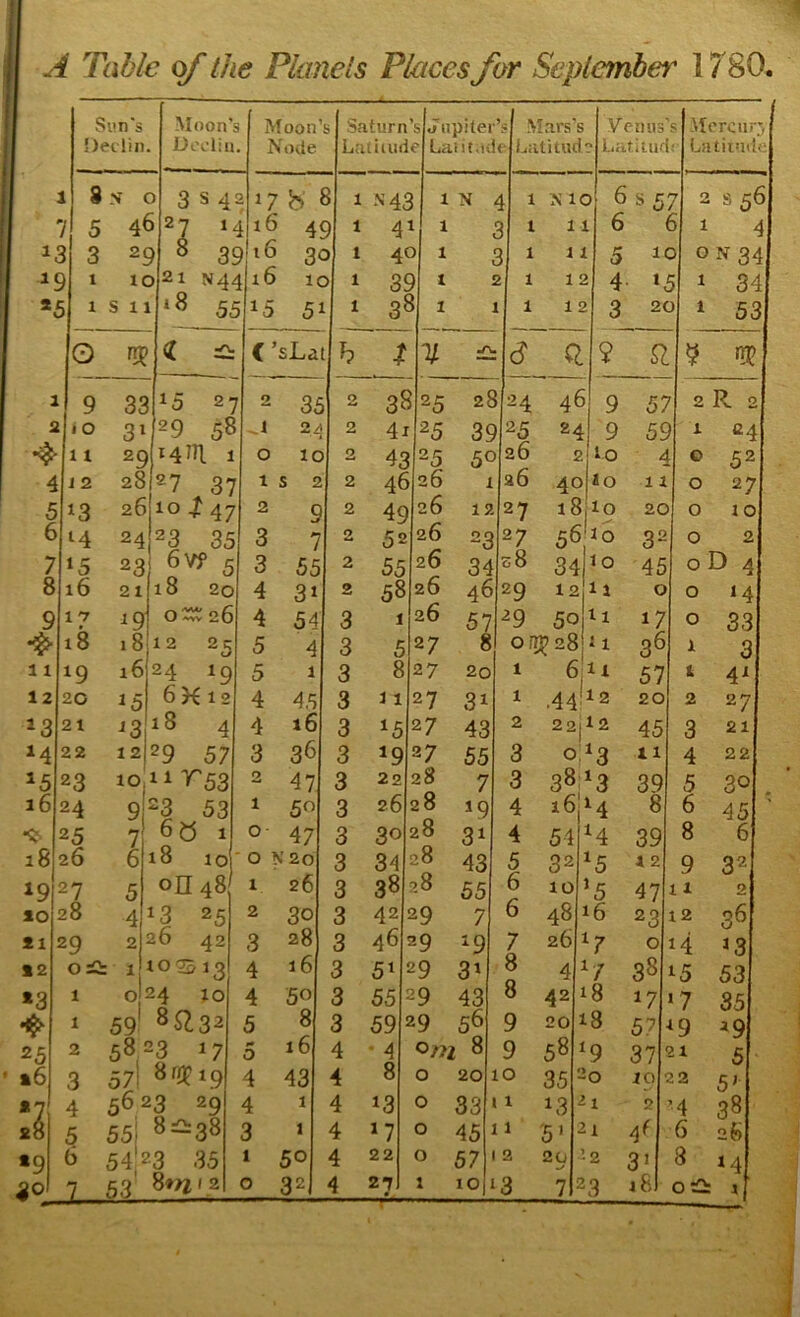 A Table of the Planets Places for September 1780.
Sun's Declin. Moon's Declin. Moon's Node Saturn's Latitude Jupiter's Latitude Mars's Latitude Venus's Latitude Mercury Latitude
1 8 N 0 3 S 42 17 ♉ 8 1 N 43 1 N 4 1 N 10 6 S 57 2 S 56
7 5 46 27 14 16 49 1 41 1 3 1 11 6 6 1 4
13 3 29 8 39 16 30 1 40 1 3 1 11 5 10 0 N 34
19 1 10 21 N 44 16 10 1 39 1 2 1 12 4 15 1 34
25 1 S 11 18 55 15 51 1 38 1 1 1 12 3 20 1 53
☉ ♍ ☾ ♎ ☾'s Lat ♄ ♐ ♃ ♎ ♂ ♌ ♀ ♌ ☿ ♍
1 9 33 15 27 2 35 2 38 25 28 24 46 9 57 2 R 2
2 10 31 29 58 1 24 2 41 25 39 25 24 9 59 1 24
✥ 11 29 14 ♏ 1 0 10 2 43 25 50 26 2 10 4 0 52
4 12 28 27 37 1 S 2 2 46 26 1 26 40 10 11 0 27
5 13 26 10 ♐ 47 2 9 2 49 26 12 27 18 10 20 0 10
6 14 24 23 35 3 7 2 52 26 23 27 56 10 32 0 2
7 15 23 6 ♑ 5 3 55 2 55 26 34 28 34 10 45 0 D 4
8 16 21 18 20 4 31 2 58 26 46 29 12 11 0 0 14
9 17 19 0 ♒ 26 4 54 3 1 26 57 29 50 11 17 0 33
✥ 18 18 12 25 5 4 3 5 27 8 0 ♍ 28 11 36 1 3
11 19 16 24 19 5 1 3 8 27 20 1 6 11 57 1 41
12 20 15 6 ♓ 12 4 45 3 11 27 31 1 44 12 20 2 27
13 21 13 18 4 4 16 3 15 27 43 2 22 12 45 3 21
14 22 12 29 57 3 36 3 19 27 55 3 0 13 11 4 22
15 23 10 11 ♈ 53 2 47 3 22 28 7 3 38 13 39 5 30
16 24 9 23 53 1 50 3 26 28 19 4 16 14 8 6 45
✥ 25 7 6 ♉ 1 0 47 3 30 28 31 4 54 14 39 8 6
18 26 6 18 10 0 N 20 3 34 28 43 5 32 15 12 9 32
19 27 5 0 ♊ 48 1 26 3 38 28 55 6 10 15 47 11 2
20 28 4 13 25 2 30 3 42 29 7 6 48 16 23 12 36
21 29 2 26 42 3 28 3 46 29 19 7 26 17 0 14 13
22 0 ♎ 1 10 ♋ 13 4 16 3 51 29 31 8 4 17 38 15 53
23 1 0 24 10 4 50 3 55 29 43 8 42 18 17 17 35
✥ 1 59 8 ♌ 32 5 8 3 59 29 56 9 20 18 57 19 19
25 2 58 23 17 5 16 4 4 0 ♏ 8 9 58 19 37 21 5
26 3 57 8 ♍ 19 4 43 4 8 0 20 10 35 20 19 22 51
27 4 56 23 29 4 1 4 13 0 33 11 13 21 2 24 38
28 5 55 8 ♎ 38 3 1 4 17 0 45 11 51 21 46 26 26
29 6 54 23 35 1 50 4 22 0 57 12 29 22 31 28 14
30 7 53 8 ♏ 12 0 32 4 27 1 10 13 7 23 18 0 ♎ 1